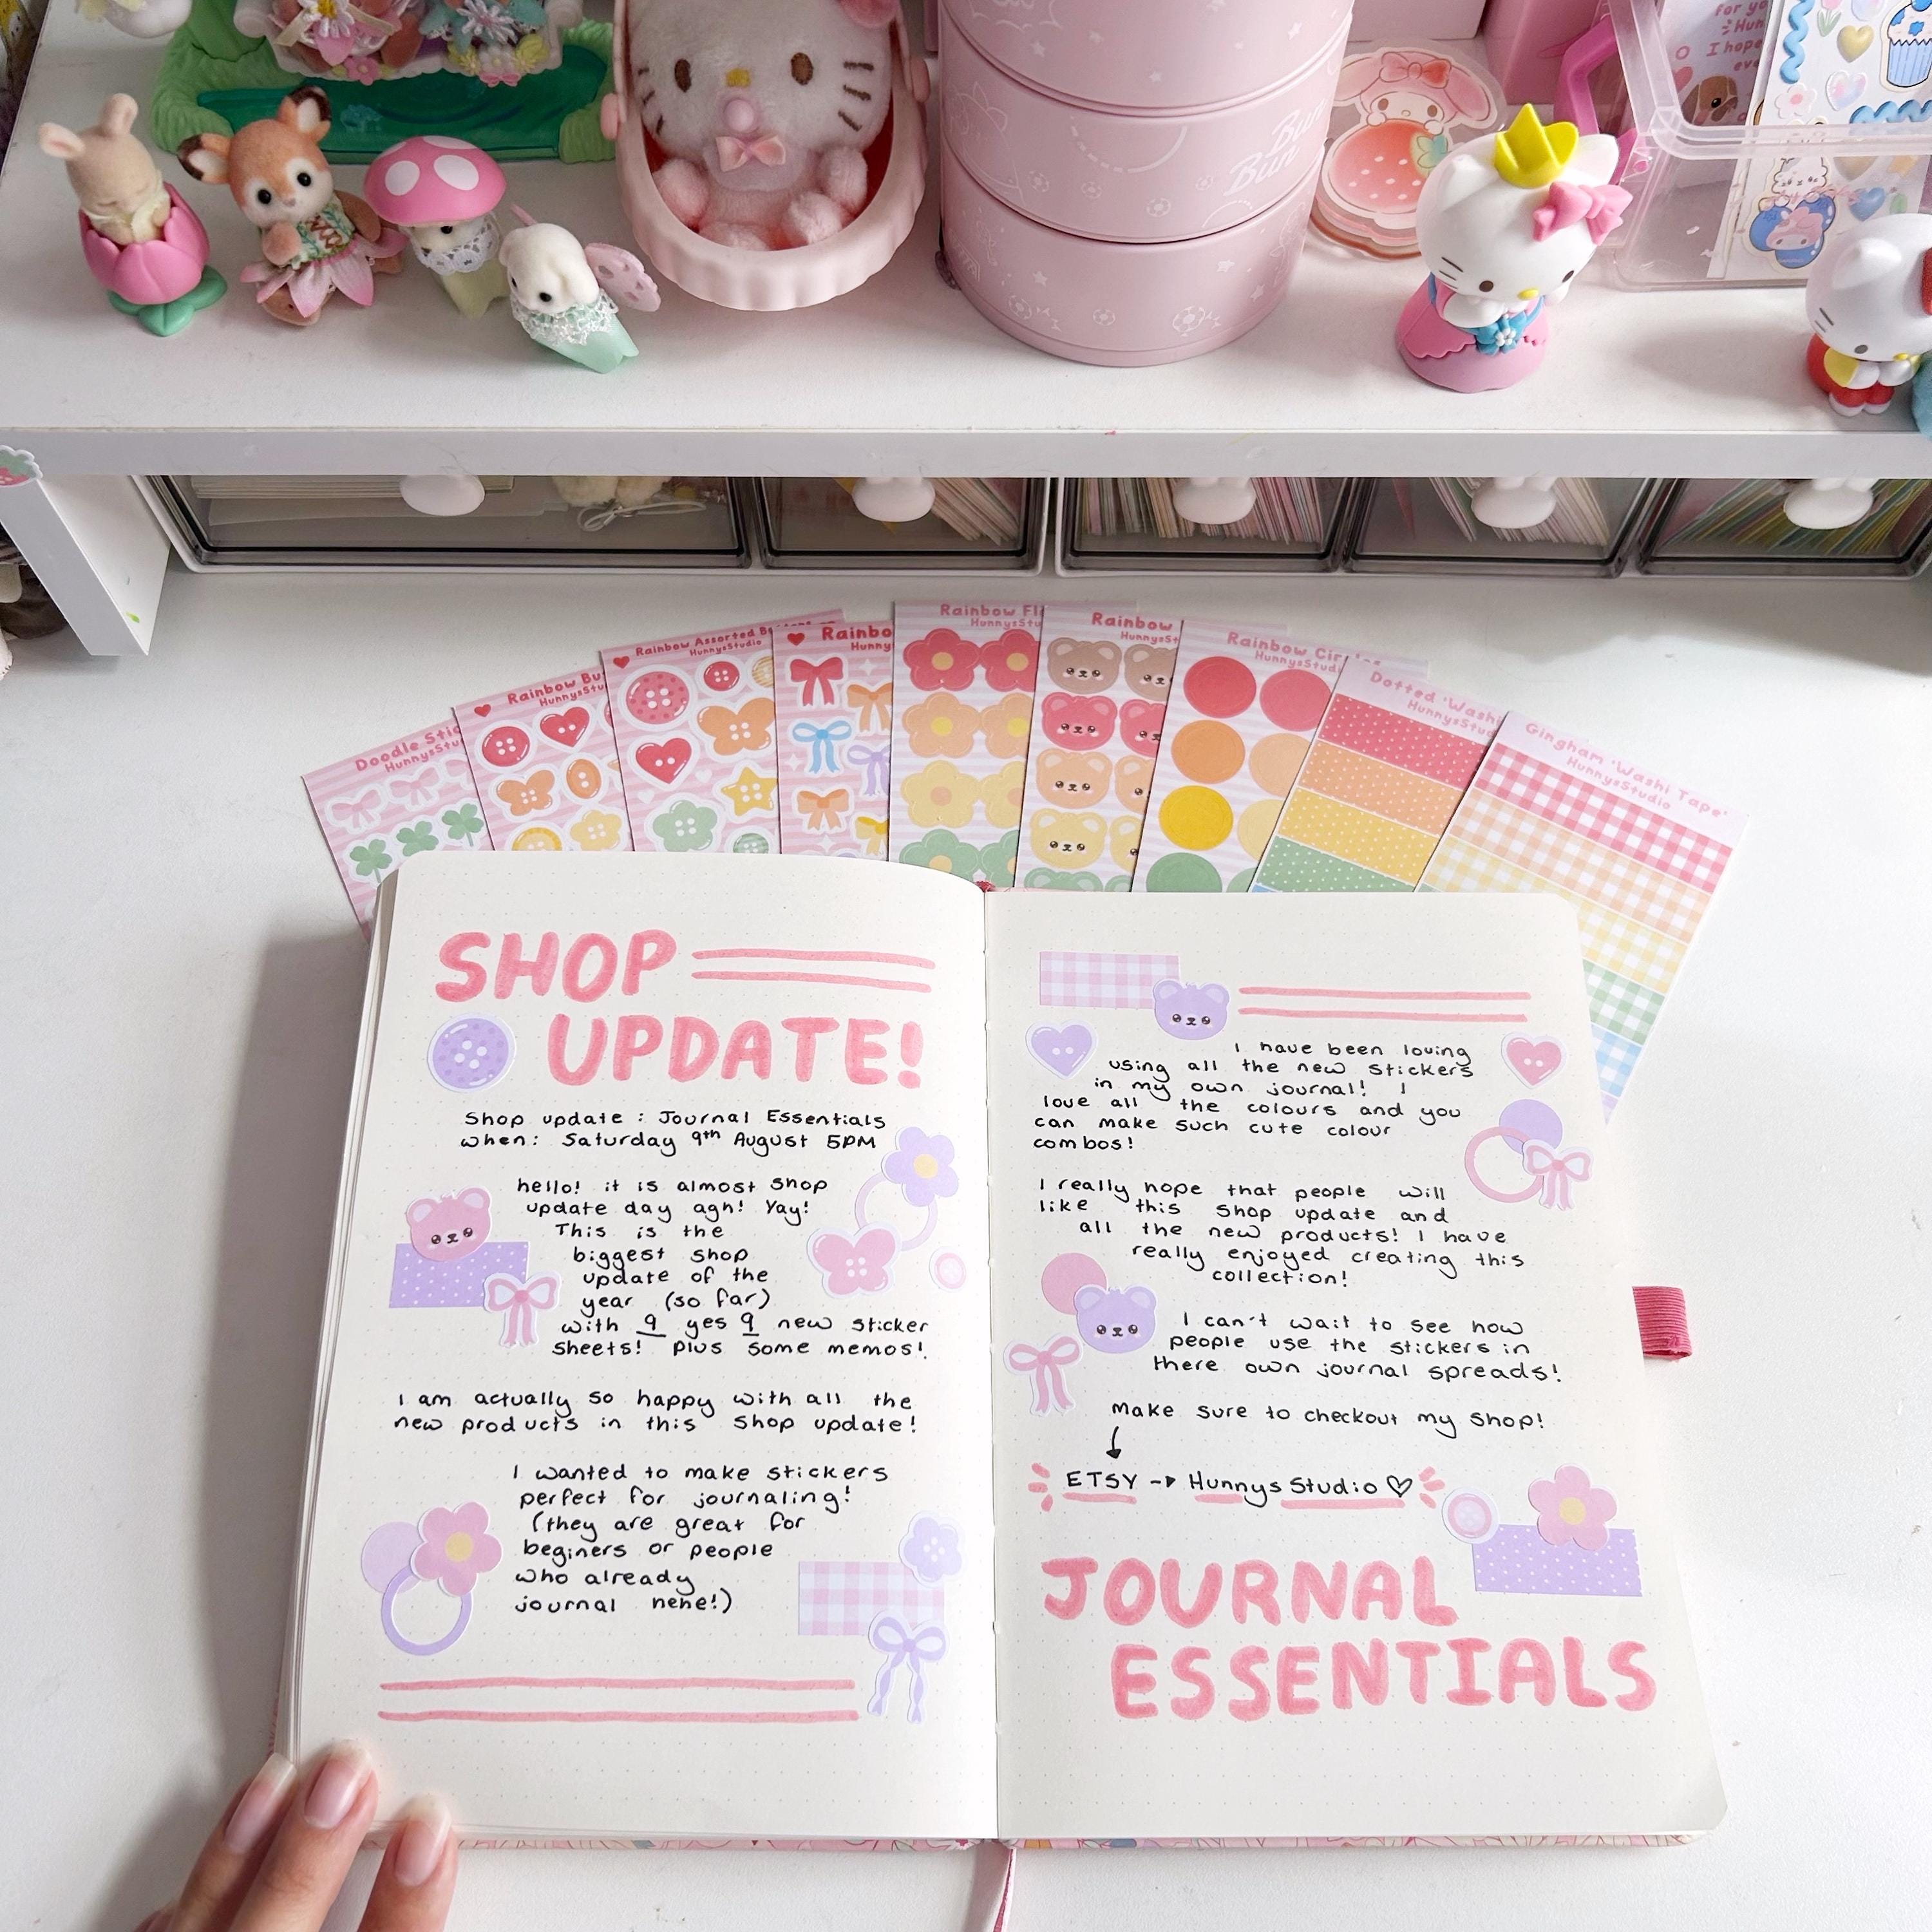 for yo
Hun
I hope
eve
Bun
Bun
Doodle Stic
HunnysStu
Rainbow Bu
HunnysStu
Rainbow Assorted
HunnysStudio
Rainbo
Hunny
Rainbow Fl
HunnysStu
Rainbow
HunnysSt
Rainbow Circles
HunnysStudi
Dotted 'Washi
HunnysStudio
Gingham 'Washi Tape'
HunnysStudio
SHOP
UPDATE!
Shop update : Journal Essentials
when: Saturday 9th August 5PM
hello! it is almost shop
update day agh! Yay!
This is the
biggest shop
update of the
year (so far)
with 9 yes 9 new sticker
sheets! plus some memos!
I am actually so happy with all the
new products in this shop update!
I wanted to make stickers
perfect for journaling!
(they are great for
beginers or people
who already
journal hehe!)
I have been loving
using all the new stickers
in my own journal! I
love all the colours and you
can make such cute colour
combos!
I really hope that people will
like this shop update and
all the new products! I have
really enjoyed creating this
collection!
I can't wait to see how
people use the stickers in
there own journal spreads!
make sure to checkout my shop!
ETSY → Hunnys Studio ♡
JOURNAL
ESSENTIALS